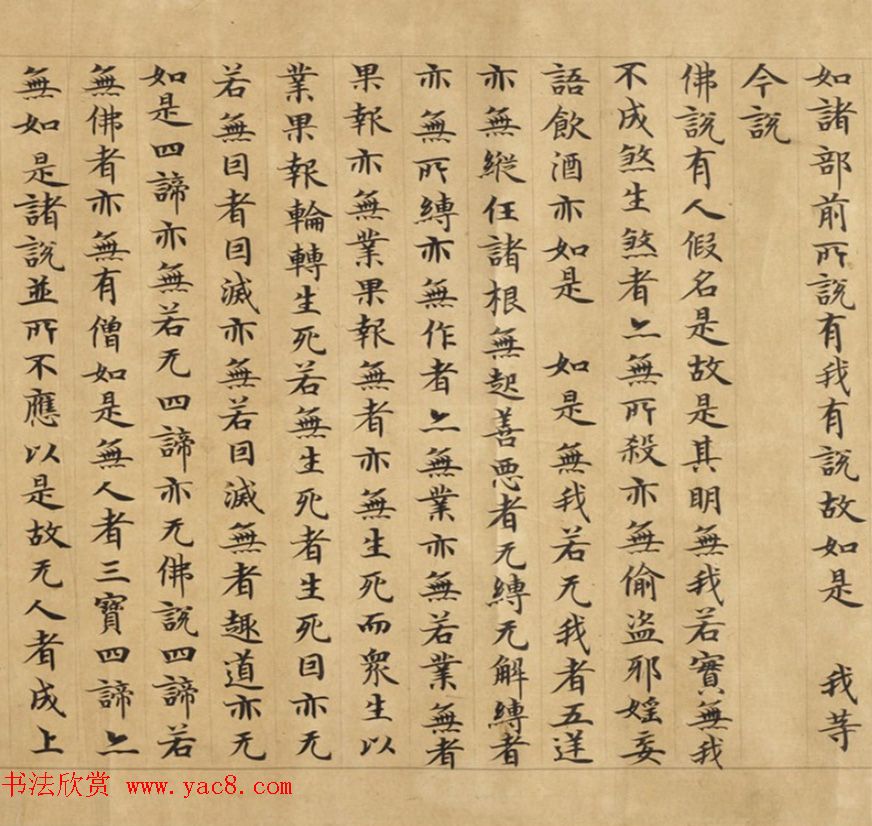 如諸部前所説有我有説故如是　我等
今説
佛説有人假名是故是其明無我若實無我
不成煞生煞者亦無所殺亦無偷盜邪婬妄
語飲酒亦如是　如是無我若无我者五逆
亦無縱任諸根無起善惡者无縛无解縛者
亦無所縛亦無作者亦無業亦無若業無者
果報亦無業果報無者亦無生死而衆生以
業果報輪轉生死若無生死者生死因亦无
若無因者因滅亦無若因滅無者趣道亦无
如是四諦亦無若无四諦亦无佛説四諦若
無佛者亦無有僧如是無人者三寶四諦亦
無如是諸説並所不應以是故无人者成上
书法欣赏 www.yac8.com